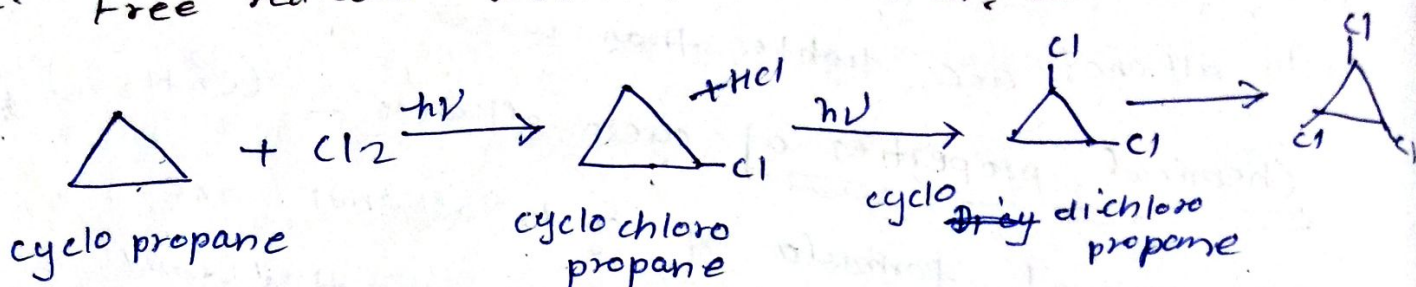 Free
Cl Cl
hν +HCl hν
+ Cl2 Cl Cl Cl Cl
cyclo propane cyclo chloro propane cyclo dichloro propane